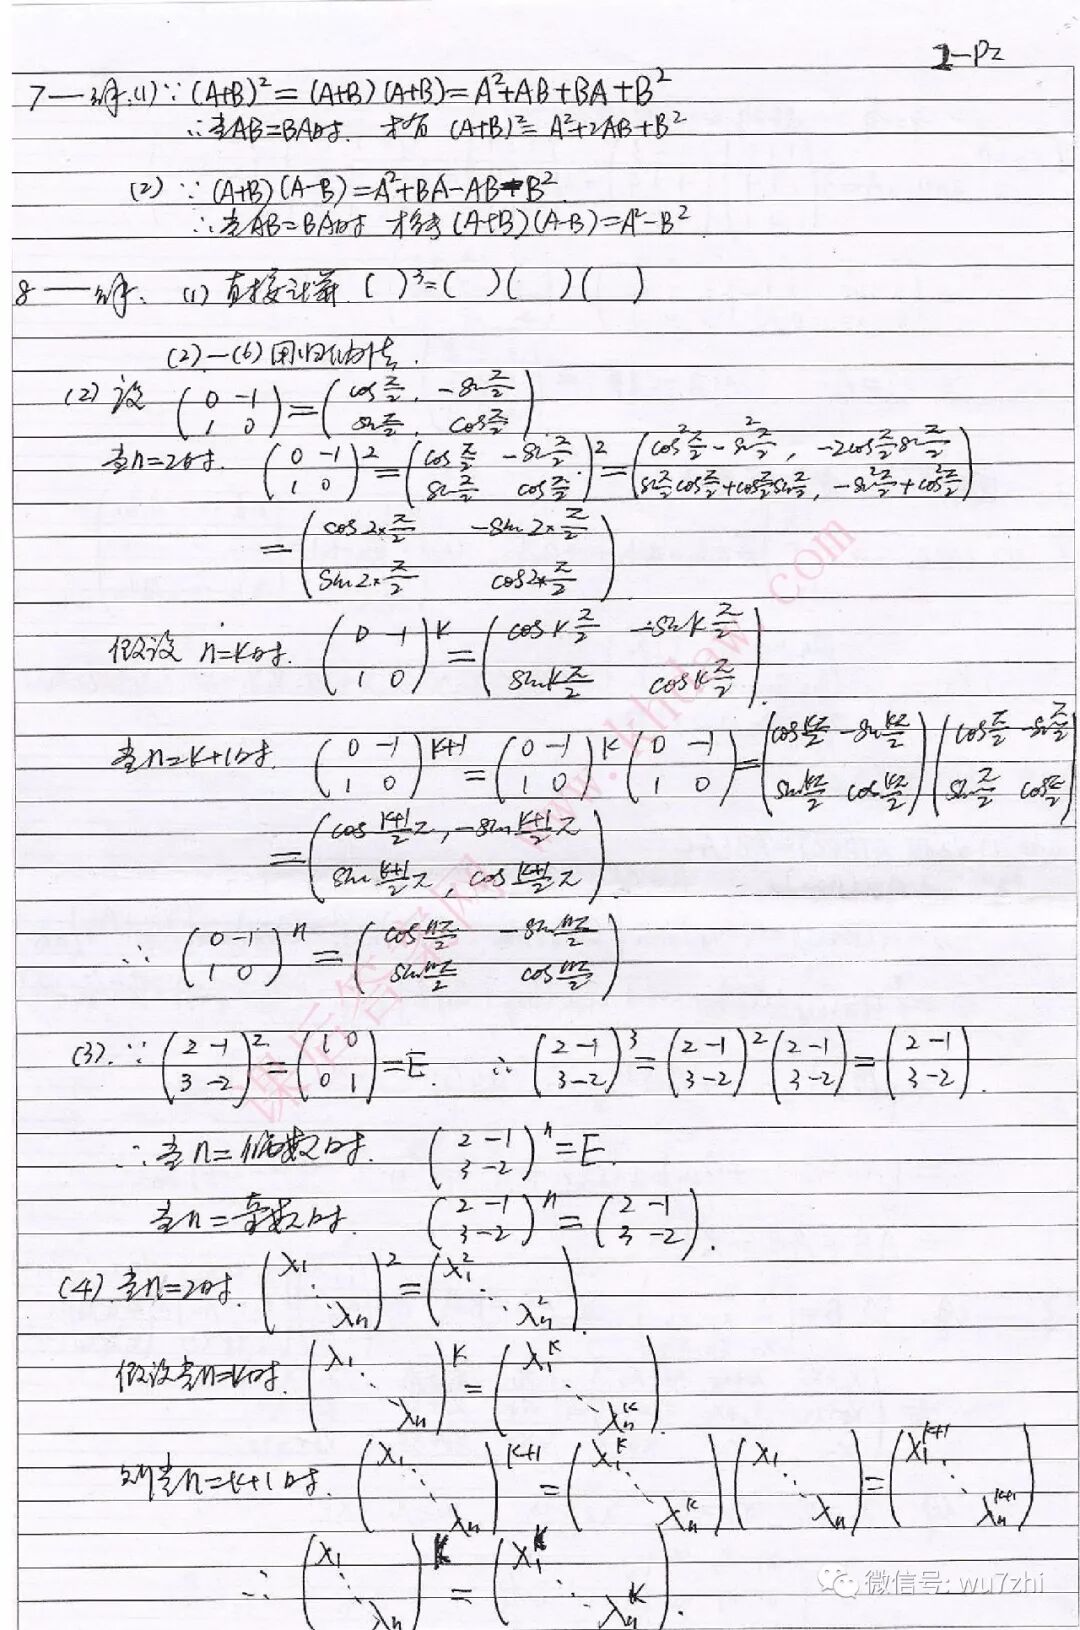 1-P2
7—解:(1)∵(A+B)²=(A+B)(A+B)=A²+AB+BA+B²
∴当AB=BA时. 才有 (A+B)²=A²+2AB+B²
(2) ∵(A+B)(A-B)=A²+BA-AB-B²
∴当AB=BA时 才有 (A+B)(A-B)=A²-B²
8—解. (1) 直接计算 ( )³=( )( )( )
(2)—(6)用归纳法.
(2) 设 (0 -1; 1 0)=(cos π/2, -sin π/2; sin π/2, cos π/2)
当n=2时. (0 -1; 1 0)²=(cos π/2 -sin π/2; sin π/2 cos π/2)²=(cos²π/2-sin²π/2, -2cos π/2 sin π/2; sin π/2 cos π/2+cos π/2 sin π/2, -sin²π/2+cos²π/2)
=(cos2×π/2 -sin2×π/2; sin2×π/2 cos2×π/2)
假设 n=k时. (0 -1; 1 0)^k=(cosk π/2 -sink π/2; sink π/2 cosk π/2).
当n=k+1时. (0 -1; 1 0)^k+1=(0 -1; 1 0)^k(0 -1; 1 0)=(cos kπ/2 -sin kπ/2; sin kπ/2 cos kπ/2)(cos π/2 -sin π/2; sin π/2 cos π/2)
=(cos k+1/2 π, -sin k+1/2 π; sin k+1/2 π, cos k+1/2 π)
∴ (0 -1; 1 0)^n=(cos nπ/2 -sin nπ/2; sin nπ/2 cos nπ/2)
(3).∵(2 -1; 3 -2)²=(1 0; 0 1)=E. ∴(2 -1; 3 -2)³=(2 -1; 3 -2)²(2 -1; 3 -2)=(2 -1; 3 -2).
∴当n=偶数时. (2 -1; 3 -2)^n=E.
当n=奇数时. (2 -1; 3 -2)^n=(2 -1; 3 -2).
(4).当n=2时. (λ₁ ⋱ λn)²=(λ₁² ⋱ λn²).
假设当n=k时. (λ₁ ⋱ λn)^k=(λ₁^k ⋱ λn^k).
则当n=k+1时. (λ₁ ⋱ λn)^k+1=(λ₁^k ⋱ λn^k)(λ₁ ⋱ λn)=(λ₁^k+1 ⋱ λn^k+1)
∴ (λ₁ ⋱ λn)^k=(λ₁^k ⋱ λn^k).
课后答案网 www.khdaw.com
微信号: wu7zhi